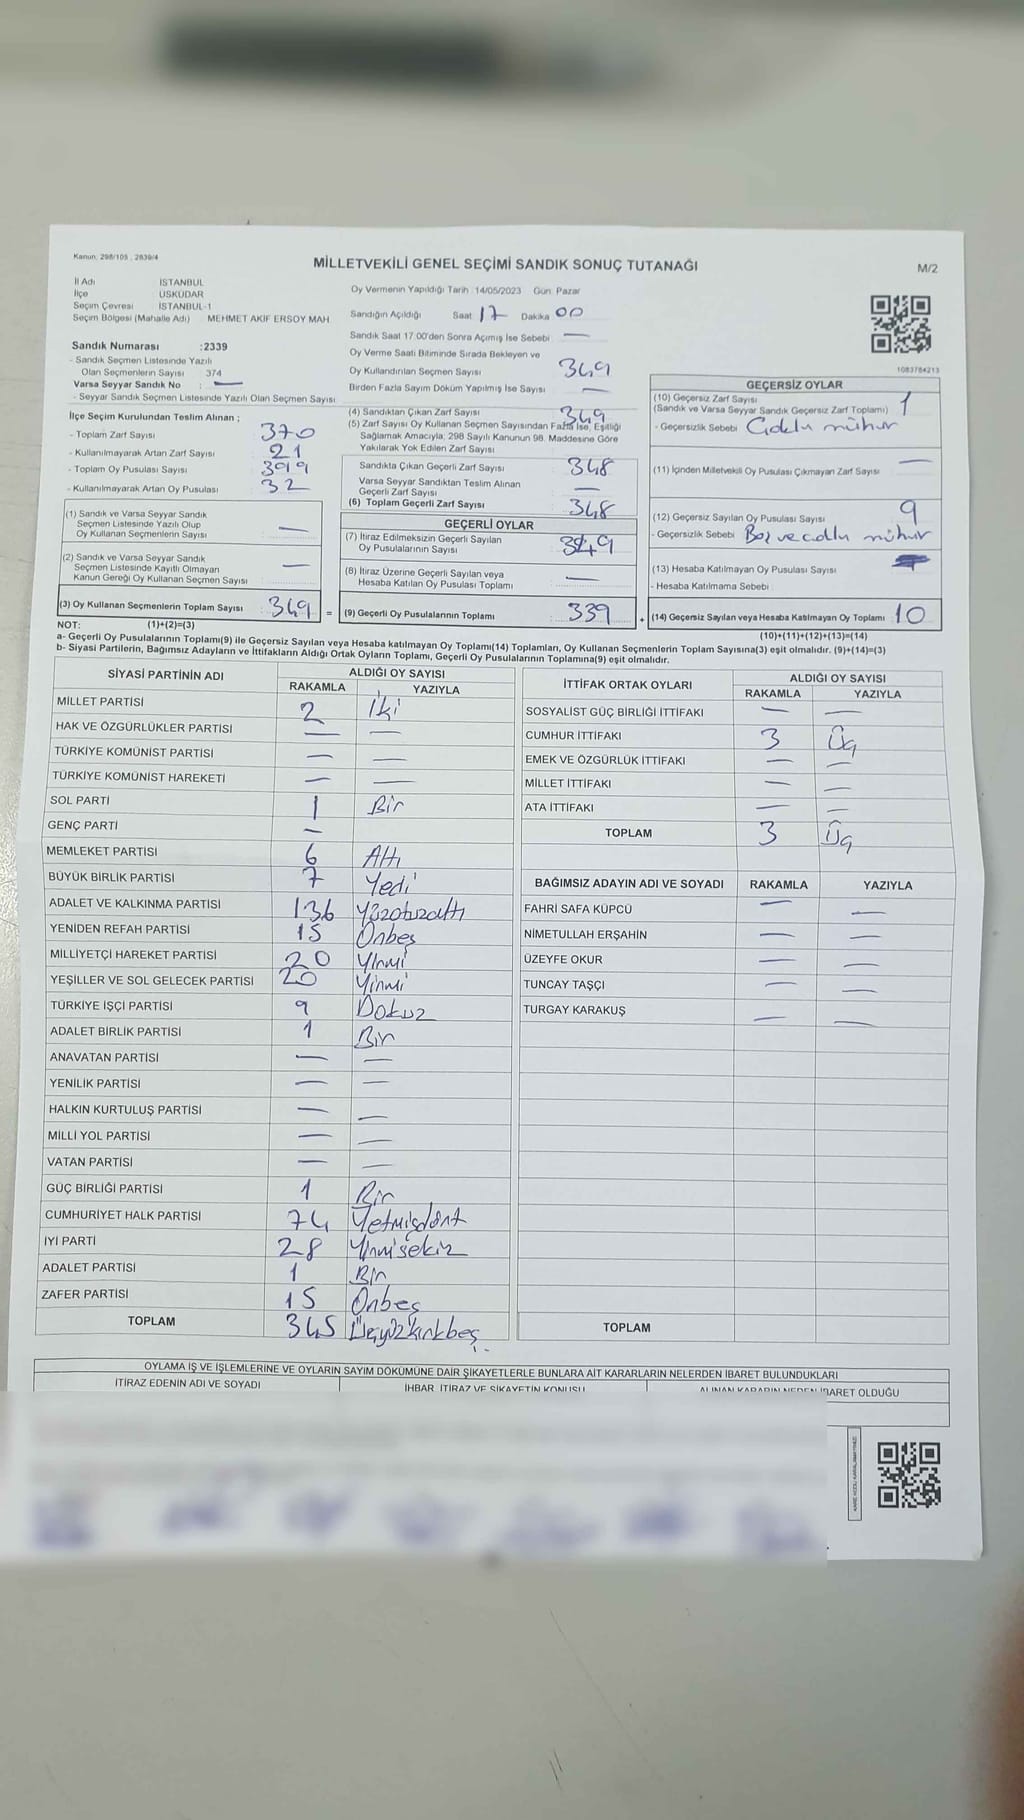 Kanun: 298/105 , 2839/4
MİLLETVEKİLİ GENEL SEÇİMİ SANDIK SONUÇ TUTANAĞI
M/2
İl Adı İSTANBUL
İlçe ÜSKÜDAR
Seçim Çevresi İSTANBUL-1
Seçim Bölgesi (Mahalle Adı) MEHMET AKİF ERSOY MAH.
Sandık Numarası :2339
- Sandık Seçmen Listesinde Yazılı
Olan Seçmenlerin Sayısı 374
Varsa Seyyar Sandık No : —
- Seyyar Sandık Seçmen Listesinde Yazılı Olan Seçmen Sayısı
İlçe Seçim Kurulundan Teslim Alınan ;
- Toplam Zarf Sayısı 370
- Kullanılmayarak Artan Zarf Sayısı 21
- Toplam Oy Pusulası Sayısı
- Kullanılmayarak Artan Oy Pusulası 32
(1) Sandık ve Varsa Seyyar Sandık
Seçmen Listesinde Yazılı Olup
Oy Kullanan Seçmenlerin Sayısı —
(2) Sandık ve Varsa Seyyar Sandık
Seçmen Listesinde Kayıtlı Olmayan
Kanun Gereği Oy Kullanan Seçmen Sayısı —
(3) Oy Kullanan Seçmenlerin Toplam Sayısı : 349 =
Oy Vermenin Yapıldığı Tarih : 14/05/2023 Gün: Pazar
Sandığın Açıldığı Saat 17 Dakika 00
Sandık Saat 17:00'den Sonra Açılmış İse Sebebi : —
Oy Verme Saati Bitiminde Sırada Bekleyen ve
Oy Kullandırılan Seçmen Sayısı 349
Birden Fazla Sayım Döküm Yapılmış İse Sayısı —
(4) Sandıktan Çıkan Zarf Sayısı 349
(5) Zarf Sayısı Oy Kullanan Seçmen Sayısından Fazla İse, Eşitliği
Sağlamak Amacıyla; 298 Sayılı Kanunun 98. Maddesine Göre
Yakılarak Yok Edilen Zarf Sayısı
Sandıkta Çıkan Geçerli Zarf Sayısı 348
Varsa Seyyar Sandıktan Teslim Alınan
Geçerli Zarf Sayısı —
(6) Toplam Geçerli Zarf Sayısı 348
GEÇERLİ OYLAR
(7) İtiraz Edilmeksizin Geçerli Sayılan
Oy Pusulalarının Sayısı
(8) İtiraz Üzerine Geçerli Sayılan veya
Hesaba Katılan Oy Pusulası Toplamı —
(9) Geçerli Oy Pusulalarının Toplamı : 339 +
1083784213
GEÇERSİZ OYLAR
(10) Geçersiz Zarf Sayısı
(Sandık ve Varsa Seyyar Sandık Geçersiz Zarf Toplamı) 1
- Geçersizlik Sebebi mühür
(11) İçinden Milletvekili Oy Pusulası Çıkmayan Zarf Sayısı —
(12) Geçersiz Sayılan Oy Pusulası Sayısı 9
- Geçersizlik Sebebi Boş ve mühür
(13) Hesaba Katılmayan Oy Pusulası Sayısı
- Hesaba Katılmama Sebebi :
(14) Geçersiz Sayılan veya Hesaba Katılmayan Oy Toplamı : 10
(10)+(11)+(12)+(13)=(14)
NOT: (1)+(2)=(3)
a- Geçerli Oy Pusulalarının Toplamı(9) ile Geçersiz Sayılan veya Hesaba katılmayan Oy Toplamı(14) Toplamları, Oy Kullanan Seçmenlerin Toplam Sayısına(3) eşit olmalıdır. (9)+(14)=(3)
b- Siyasi Partilerin, Bağımsız Adayların ve İttifakların Aldığı Oy Sayıları Toplamı, Geçerli Oy Pusulalarının Toplamına(9) eşit olmalıdır.
SİYASİ PARTİNİN ADI
ALDIĞI OY SAYISI
RAKAMLA YAZIYLA
MİLLET PARTİSİ 2 İki
HAK VE ÖZGÜRLÜKLER PARTİSİ — —
TÜRKİYE KOMÜNİST PARTİSİ — —
TÜRKİYE KOMÜNİST HAREKETİ — —
SOL PARTİ 1 Bir
GENÇ PARTİ —
MEMLEKET PARTİSİ 6 Altı
BÜYÜK BİRLİK PARTİSİ 7 Yedi
ADALET VE KALKINMA PARTİSİ 136 Yüzotuzaltı
YENİDEN REFAH PARTİSİ 15 Onbeş
MİLLİYETÇİ HAREKET PARTİSİ 20 Yirmi
YEŞİLLER VE SOL GELECEK PARTİSİ 20 Yirmi
TÜRKİYE İŞÇİ PARTİSİ 9 Dokuz
ADALET BİRLİK PARTİSİ 1 Bir
ANAVATAN PARTİSİ — —
YENİLİK PARTİSİ — —
HALKIN KURTULUŞ PARTİSİ — —
MİLLİ YOL PARTİSİ — —
VATAN PARTİSİ — —
GÜÇ BİRLİĞİ PARTİSİ 1 Bir
CUMHURİYET HALK PARTİSİ 74 Yetmişdört
İYİ PARTİ 28 Yirmisekiz
ADALET PARTİSİ 1 Bir
ZAFER PARTİSİ 15 Onbeş
TOPLAM 345 Üçyüzkırkbeş
İTTİFAK ORTAK OYLARI
ALDIĞI OY SAYISI
RAKAMLA YAZIYLA
SOSYALİST GÜÇ BİRLİĞİ İTTİFAKI — —
CUMHUR İTTİFAKI 3 Üç
EMEK VE ÖZGÜRLÜK İTTİFAKI — —
MİLLET İTTİFAKI — —
ATA İTTİFAKI — —
TOPLAM 3 Üç
BAĞIMSIZ ADAYIN ADI VE SOYADI RAKAMLA YAZIYLA
FAHRİ SAFA KÜPCÜ — —
NİMETULLAH ERŞAHİN — —
ÜZEYFE OKUR — —
TUNCAY TAŞÇI — —
TURGAY KARAKUŞ — —
TOPLAM
OYLAMA İŞ VE İŞLEMLERİNE VE OYLARIN SAYIM DÖKÜMÜNE DAİR ŞİKAYETLERLE BUNLARA AİT KARARLARIN NELERDEN İBARET BULUNDUKLARI
İTİRAZ EDENİN ADI VE SOYADI
İHBAR, İTİRAZ VE ŞİKAYETİN KONUSU
ALINAN KARARIN NEDEN İBARET OLDUĞU